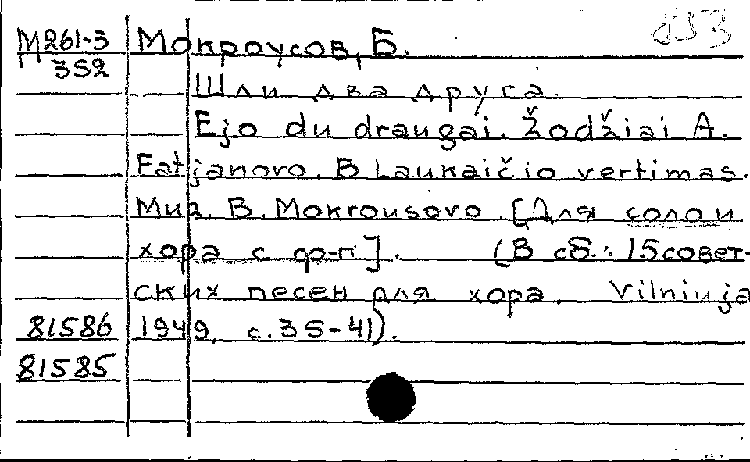 М261-3 Мокроусов, Б. 853
352
Шли два друга.
Ejo du draugai. Žodžiai A.
Fatjanovo. B Laukaičio vertimas.
Muz. B. Mokrousovo. [Для соло и
хора с ф-п]. (В сб.: 15 совет-
ских песен для хора. Vilniuja
81586 1949, с.35-41).
81585